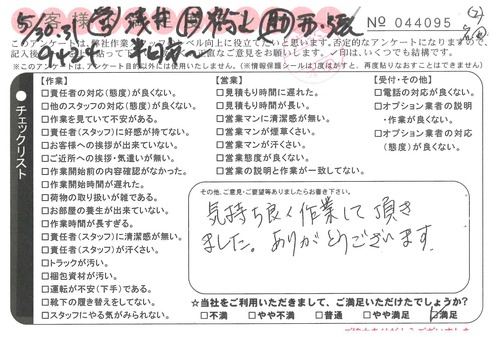 お客様
5/30.31
No 044095
このアンケートは、弊社作業
※このアンケートは、アンケート目的以外には使用いたしません。(※情報保護シールは1度はがすと、再度貼りなおすことはできません)
チェックリスト
【作業】
□責任者の対応(態度)が良くない。
□他のスタッフの対応(態度)が良くない。
□作業を見ていて不安がある。
□責任者(スタッフ)に好感が持てない。
□お客様への挨拶が出来ていない。
□ご近所への挨拶・気遣いが無い。
□作業開始前の内容確認がなかった。
□作業開始時間が遅れた。
□荷物の取り扱いが雑である。
□お部屋の養生が出来ていない。
□作業時間が長すぎる。
□責任者(スタッフ)に清潔感が無い。
□責任者(スタッフ)が汗くさい。
□トラックが汚い。
□梱包資材が汚い。
□運転が不安(下手)である。
□靴下の履き替えをしてない。
□スタッフにやる気がみられない。
【営業】
□見積もり時間に遅れた。
□見積もり時間が長い。
□営業マンに清潔感が無い。
□営業マンが煙草くさい。
□営業マンが汗くさい。
□営業態度が良くない。
□営業の説明と作業が一致してない。
【受付・その他】
□電話の対応が良くない。
□オプション業者の説明
・作業が良くない。
□オプション業者の対応
(態度)が良くない。
その他、ご意見・ご要望等ありましたらお書き下さい。
気持ち良く作業して頂き
ました。ありがとうございます
☆当社をご利用いただきまして、ご満足いただけたでしょうか?
□不満 □やや不満 □普通 □やや満足 □満足